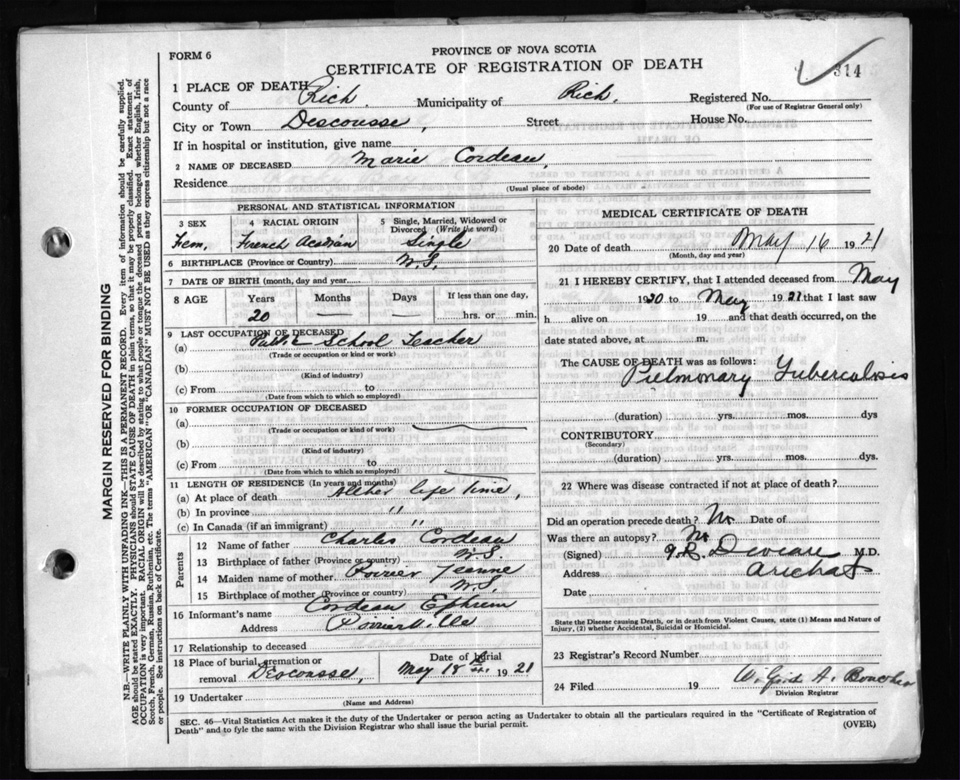 FORM 6
PROVINCE OF NOVA SCOTIA
CERTIFICATE OF REGISTRATION OF DEATH
314
1 PLACE OF DEATH
County of Rich. Municipality of Rich. Registered No.
(For use of Registrar General only)
City or Town Descousse, Street House No.
If in hospital or institution, give name
2 NAME OF DECEASED Marie Cordeau,
Residence
(Usual place of abode)
PERSONAL AND STATISTICAL INFORMATION
3 SEX 4 RACIAL ORIGIN 5 Single, Married, Widowed or Divorced (Write the word)
Fem, French Acadian Single
6 BIRTHPLACE (Province or Country) N.S.
7 DATE OF BIRTH (month, day and year)
8 AGE Years Months Days If less than one day,
20 — — hrs. or min.
9 LAST OCCUPATION OF DECEASED
(a) School Teacher
(Trade or occupation or kind of work)
(b)
(Kind of industry)
(c) From to
(Date from which to which so employed)
10 FORMER OCCUPATION OF DECEASED
(a)
(Trade or occupation or kind of work)
(b)
(Kind of industry)
(c) From to
(Date from which to which so employed)
11 LENGTH OF RESIDENCE (In years and months)
(a) At place of death All her life time,
(b) In province "
(c) In Canada (if an immigrant) "
Parents
12 Name of father Charles Cordeau
13 Birthplace of father (Province or country) N.S.
14 Maiden name of mother Poirier Jeanne
15 Birthplace of mother (Province or country) N.S.
16 Informant's name Cordeau Ephrem
Address Poirierville
17 Relationship to deceased
18 Place of burial, cremation or removal Descousse, Date of burial May 18 1921
19 Undertaker
(Name and Address)
MEDICAL CERTIFICATE OF DEATH
20 Date of death May 16 1921
(Month, day and year)
21 I HEREBY CERTIFY, that I attended deceased from May
1920 to May 1921 that I last saw
h alive on 19 and that death occurred, on the
date stated above, at m.
The CAUSE OF DEATH was as follows:
Pulmonary Tuberculosis
(duration) yrs. mos. dys
CONTRIBUTORY
(Secondary)
(duration) yrs. mos. dys.
22 Where was disease contracted if not at place of death?
Did an operation precede death? No Date of
Was there an autopsy? No
(Signed) M.D.
Address Arichat
Date
State the Disease causing Death, or in death from Violent Causes, state (1) Means and Nature of Injury, (2) whether Accidental, Suicidal or Homicidal.
23 Registrar's Record Number
24 Filed 19 A. Boucher
Division Registrar
SEC. 46—Vital Statistics Act makes it the duty of the Undertaker or person acting as Undertaker to obtain all the particulars required in the "Certificate of Registration of
Death" and to fyle the same with the Division Registrar who shall issue the burial permit. (OVER)
MARGIN RESERVED FOR BINDING
N.B.—WRITE PLAINLY WITH UNFADING INK—THIS IS A PERMANENT RECORD. Every item of information should be carefully supplied.
AGE should be stated EXACTLY. PHYSICIANS should STATE CAUSE OF DEATH in plain terms, so that it may be properly classified. Exact statement of
OCCUPATION is very important. RACIAL ORIGIN will be described by stating to what people or tongue the deceased person belonged whether English, Irish,
Scotch, French, German, Russian, Ruthenian, etc. The terms "AMERICAN" OR "CANADIAN" MUST NOT BE USED as they express citizenship but not a race
or people. See instructions on back of Certificate.